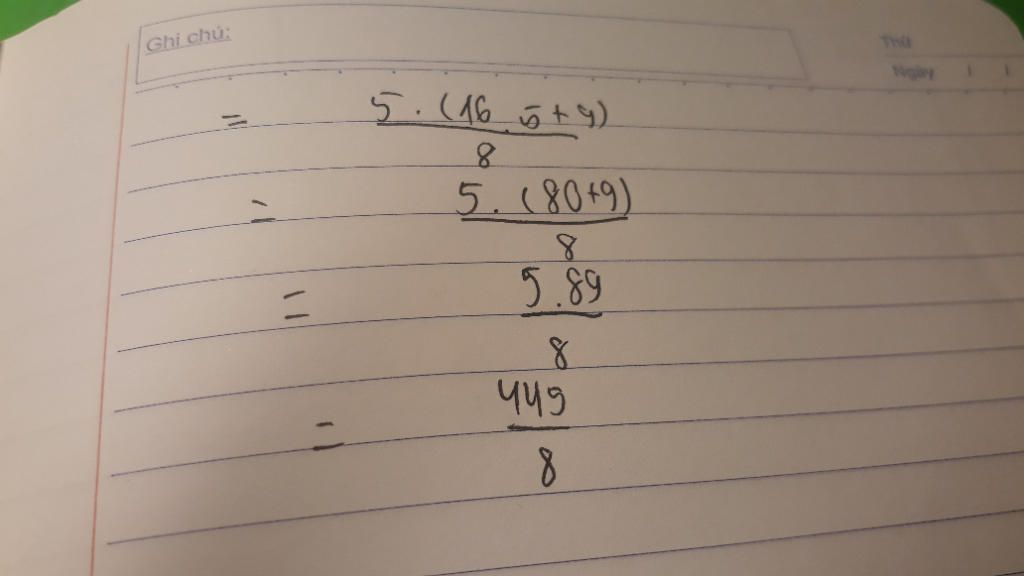 Ghi chú:
Thứ
Ngày / /
= 5 . (16 . 5 + 9)
8
= 5 . (80+9)
8
= 5 . 89
8
= 449
8